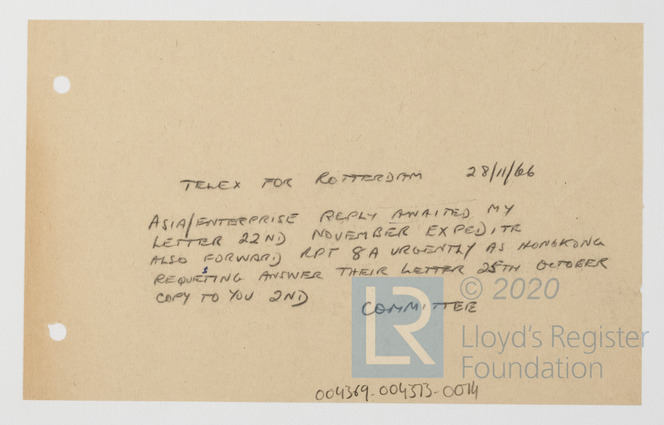 TELEX FOR ROTTERDAM 28/11/66
ASIA/ENTERPRISE REPLY AWAITED MY
LETTER 22ND NOVEMBER EXPEDITE
ALSO FORWARD RPT 8A URGENTLY AS HONGKONG
REQUESTING ANSWER THEIR LETTER 25TH OCTOBER
COPY TO YOU 2ND COMMITTEE
LR © 2020
Lloyd's Register
Foundation
004369-004373-0014